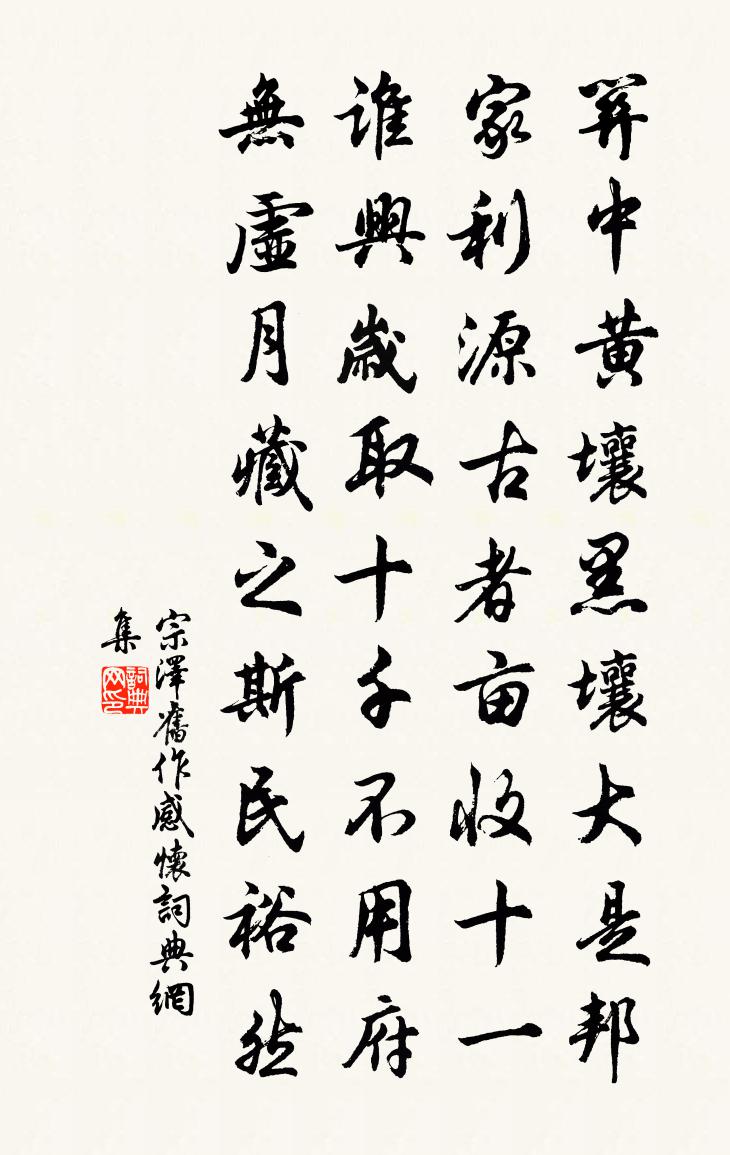 中黃壤黑壤大是邦
家利源古者亩收十一
誰興歲取十千不用府
無虛月藏之斯民裕然
宗澤舊作感懷詞典網
集
詞典
网印